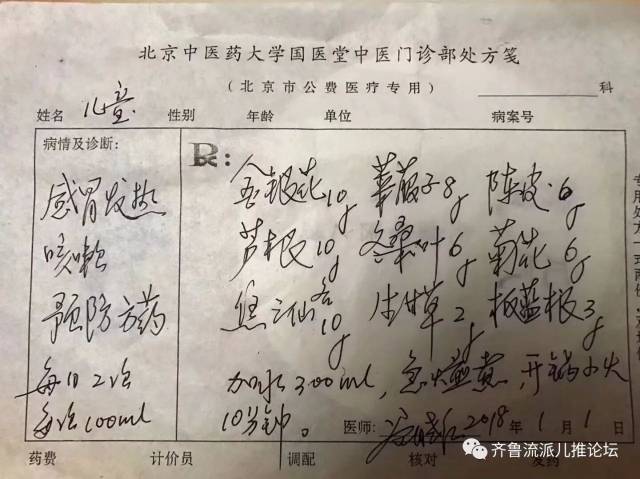 北京中医药大学国医堂中医门诊部处方笺
(北京市公费医疗专用) 科
姓名 儿童 性别 年龄 单位 病案号
病情及诊断:
感冒发热
咳嗽
预防方药
每日2次
每次100ml
R:
金银花10g 莱菔子8g 陈皮6g
芦根10g 冬桑叶6g 菊花6g
焦三仙各10g 生甘草2g 板蓝根3g
加水300ml, 急火煎煮, 开锅小火
10分钟。 医师: 2018年1月1日
药费 计价员 调配 核对 发药
齐鲁流派儿推论坛